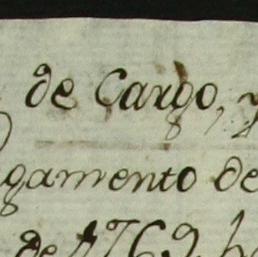 de Cargo, y
gamento de
de 1769 ha